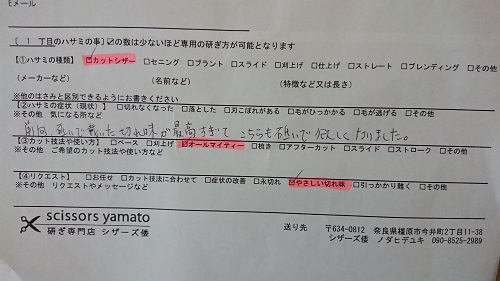 Eメール
[ 1 丁目のハサミの事] ☑の数は少ないほど専用の研ぎ方が可能となります
【①ハサミの種類】 ☑カットシザー □セニング □ブラント □スライド □刈上げ □仕上げ □ストレート □ブレンディング □その他
(メーカーなど) (名前など) (特徴など又は長さ)
※他のはさみと区別できるようにお書きください
【②ハサミの症状（現状）】 □切れなくなった □落とした □刃こぼれがある □毛がひっかかる □毛が逃げる □その他
※その他 気になる所など
前回 研いで戴いた切れ味が最高すぎて こちらも研いで欲しくなりました。
【③カット技法や使い方】 □ベース □刈上げ ☑オールマイティー □梳き □アフターカット □スライド □ストローク □その他
※その他 ご希望のカット技法や使い方など
【④リクエスト】 □お任せ □カット技法に合わせて □症状の改善 □永切れ ☑やさしい切れ味 □引っかかり難く □その他
※その他 リクエストやメッセージなど
scissors yamato
研ぎ専門店 シザーズ倭
送り先 〒634-0812 奈良県橿原市今井町2丁目11-38
シザーズ倭 ノダヒデユキ 090-8525-2989